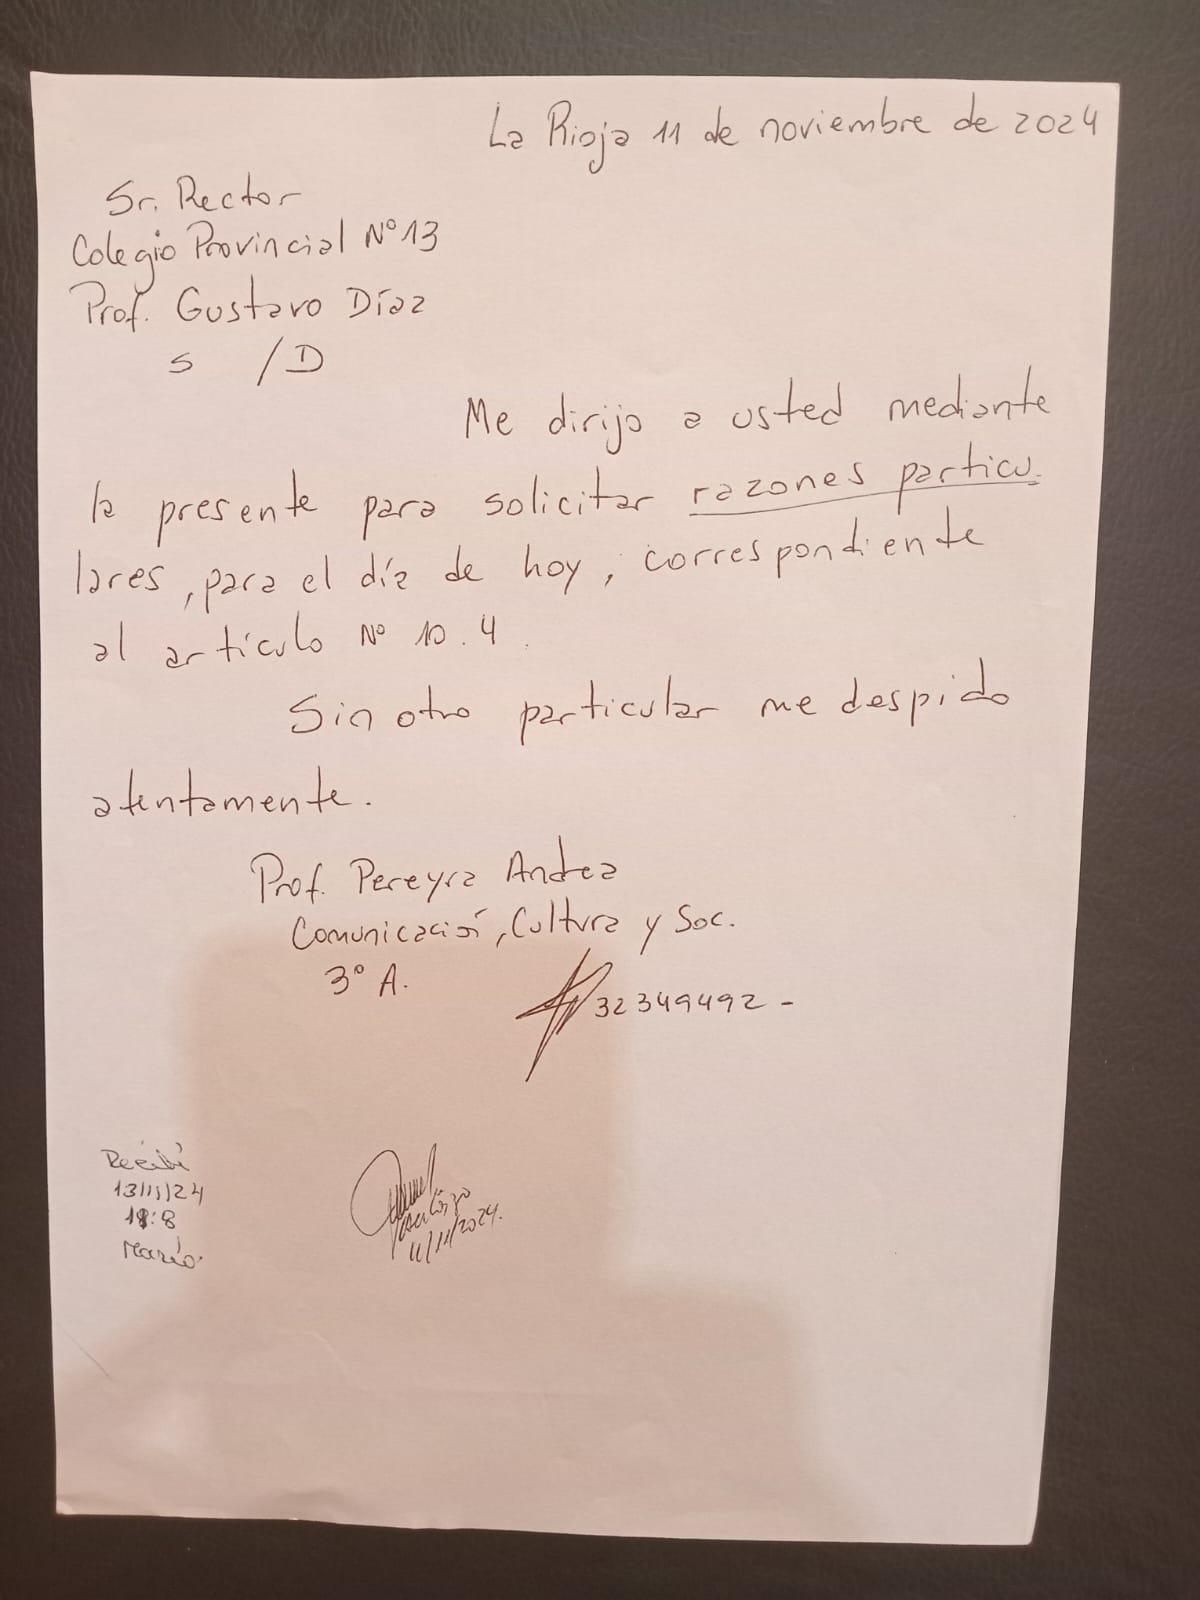 La Rioja 11 de noviembre de 2024
Sr. Rector
Colegio Provincial N° 13
Prof. Gustavo Díaz
S /D
Me dirijo a usted mediante
la presente para solicitar razones particu-
lares, para el día de hoy, correspondiente
al artículo N° 10.4.
Sin otro particular me despido
atentamente.
Prof. Pereyra Andrea
Comunicación, Cultura y Soc.
3° A.
32349492 -
Recibí
13/11/24
18:8
Mario
11/11/2024.